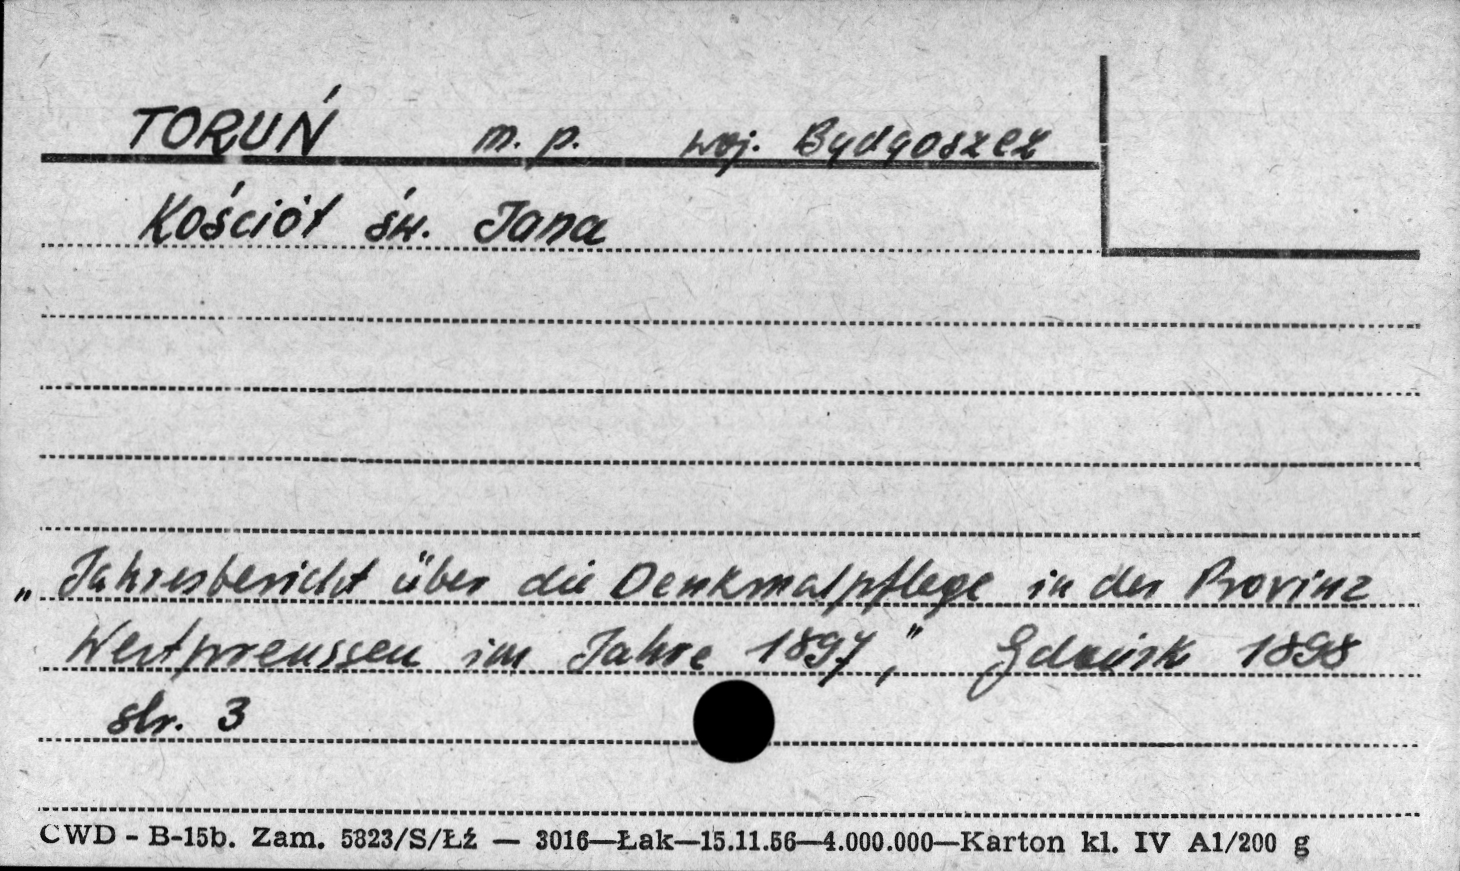 TORUŃ m. p. woj. Bydgoszcz
Kościół św. Jana
„Jahresbericht über die Denkmalpflege in der Provinz
Westpreussen im Jahre 1897," Gdańsk 1898
str. 3
CWD - B-15b. Zam. 5823/S/Łż — 3016—Łak—15.11.56—4.000.000—Karton kl. IV A1/200 g